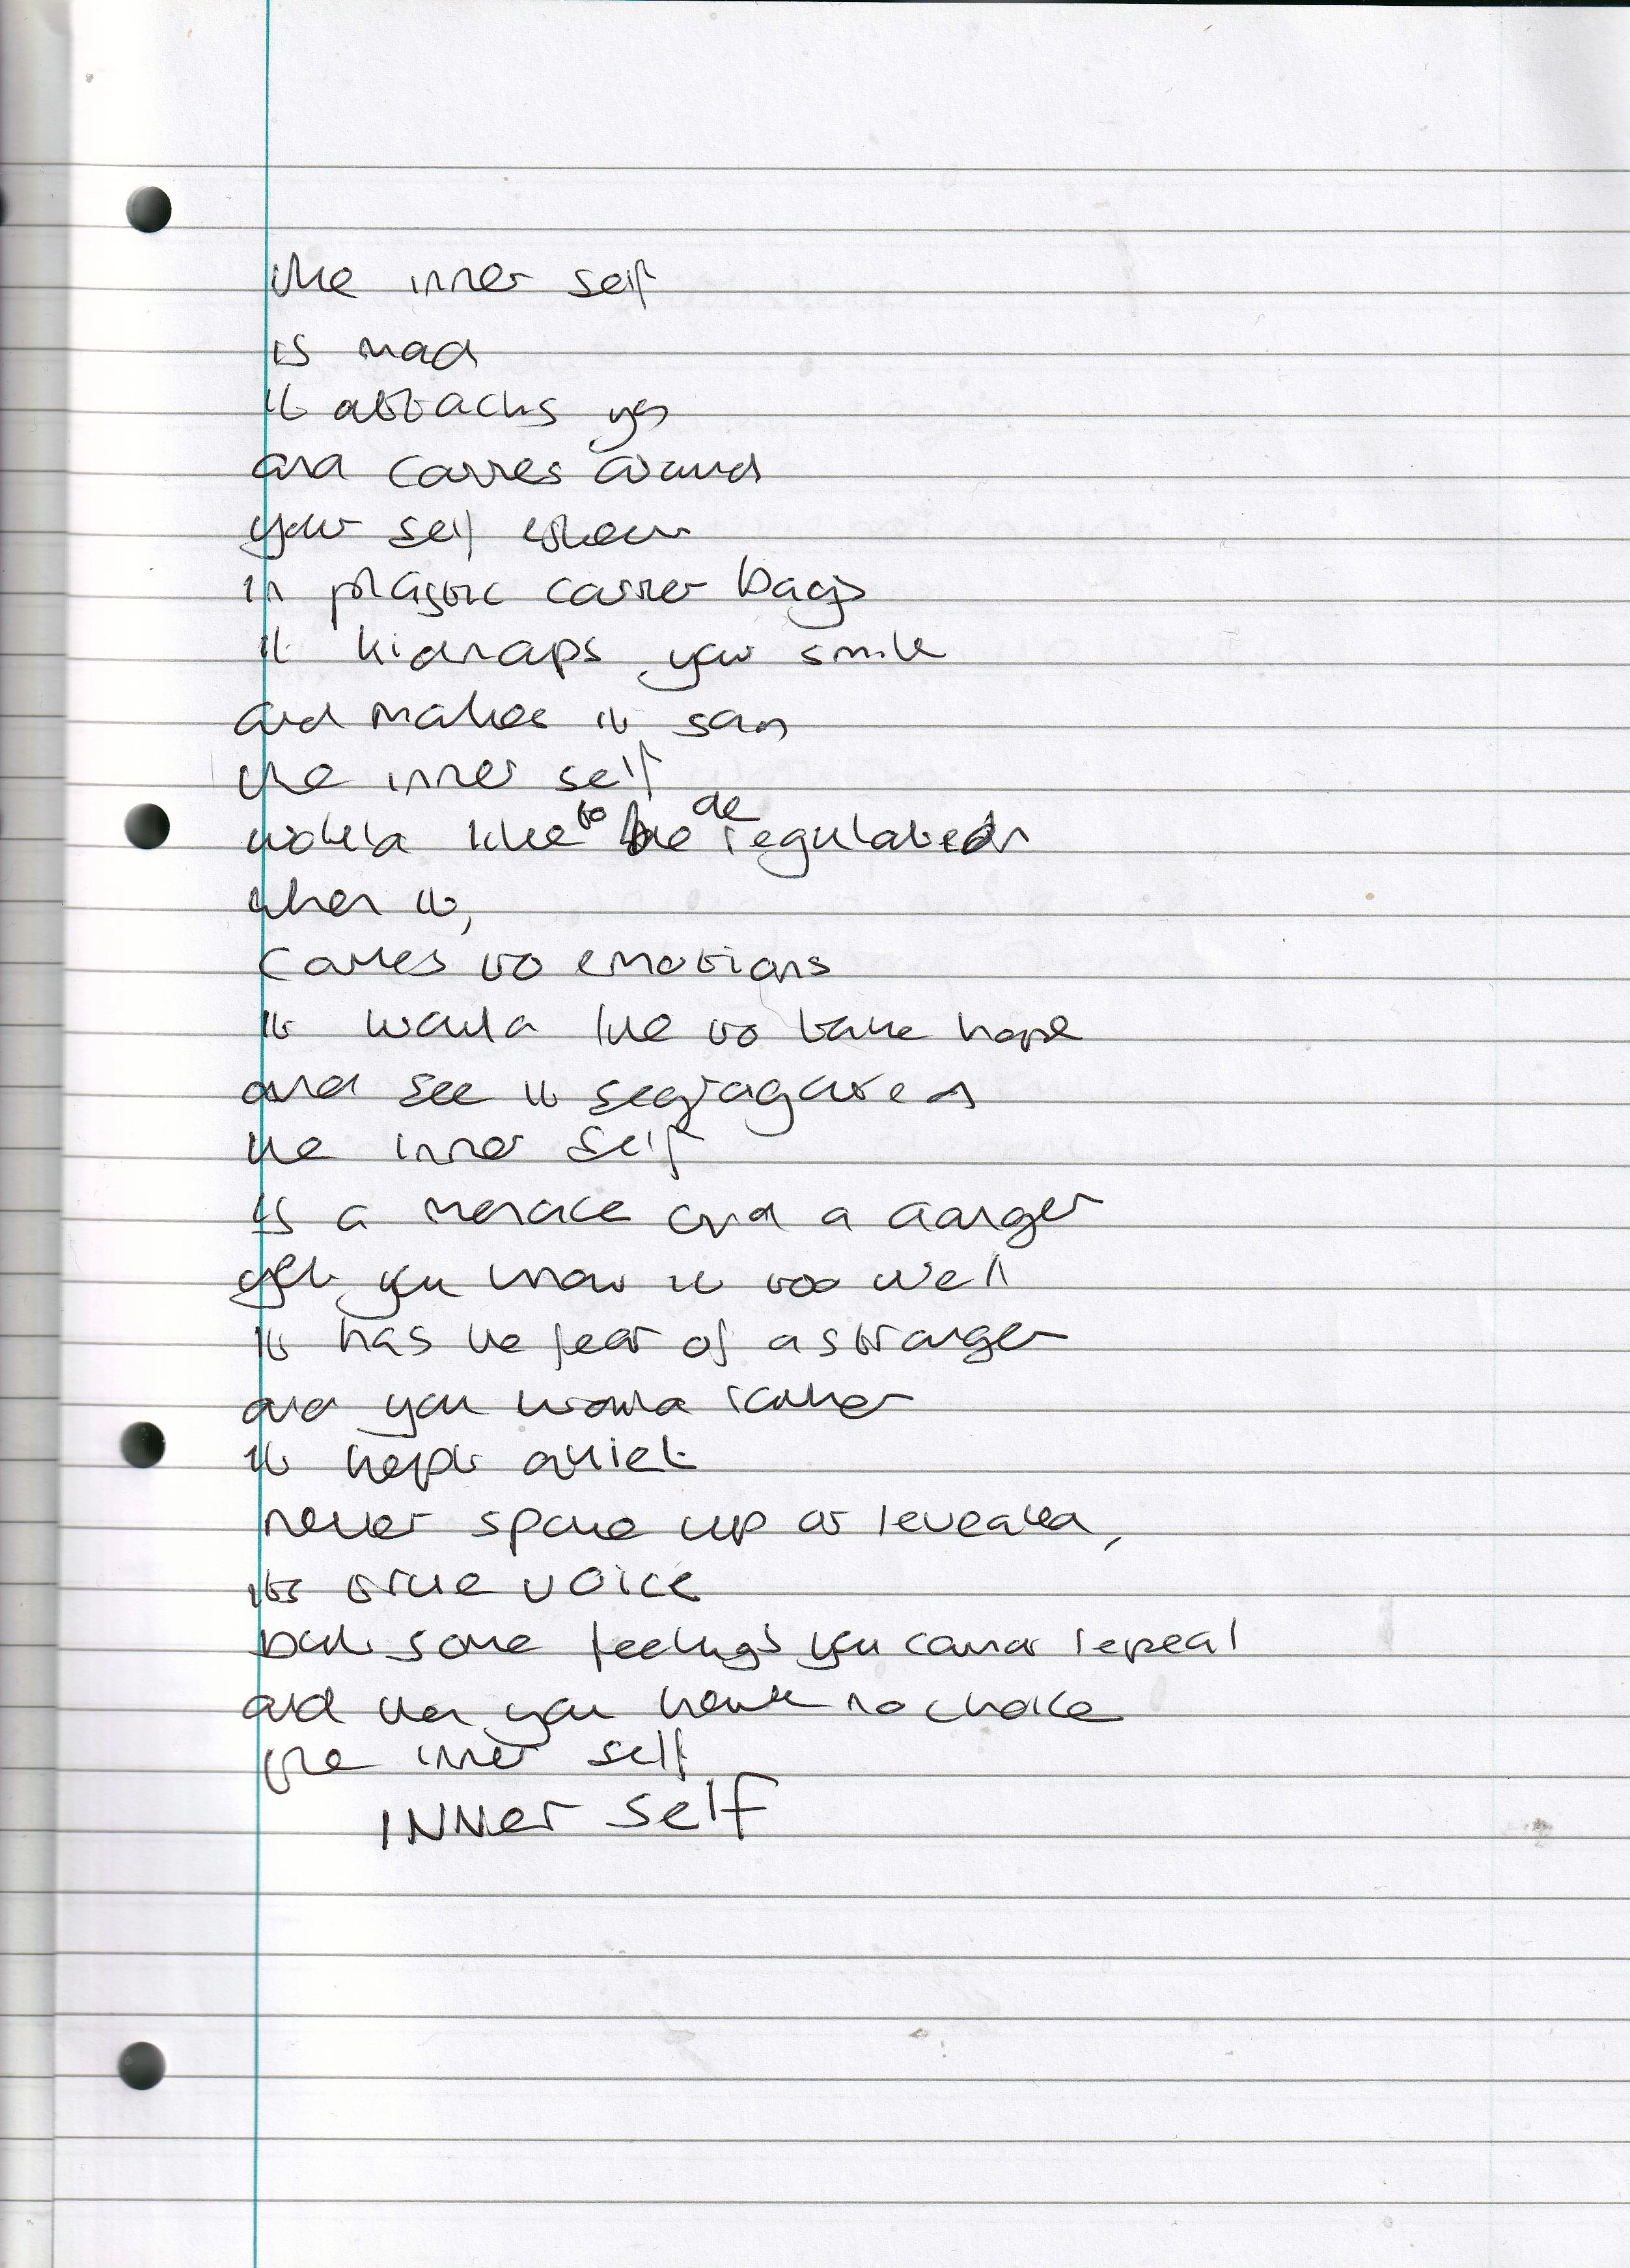 the inner self
is mad
it attacks you
and carries around
your self esteem
in plastic carrier bags
it kidnaps your smile
and makes it sad
the inner self
would like to be deregulated
when it,
comes to emotions
it would like to take hope
and see it segragated
the inner self
is a menace and a danger
yet you know it too well
it has the fear of a stranger
and you would rather
it kept quiet
never spoke up or revealed,
its true voice
but some feelings you cannot repeal
and then you have no choice
the inner self
INNer self